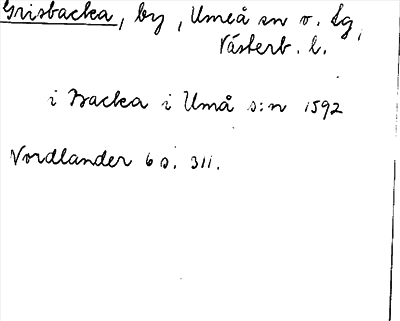 Grisbacka, by, Umeå sn o. lg,
Västerb. l.
i Backa i Umå s:n 1592
Nordlander 6 s. 311.